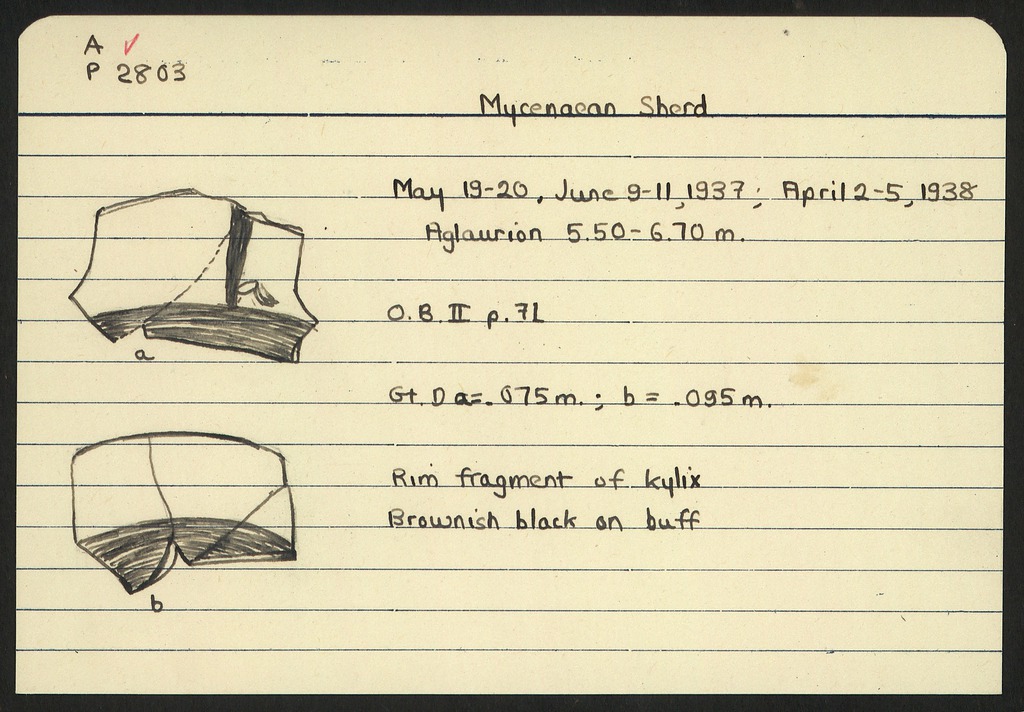 A ✓
P 2803
Mycenaean Sherd
May 19-20, June 9-11, 1937; April 2-5, 1938
Aglaurion 5.50-6.70 m.
O.B. II p. 71
Gt. D a=.075m.; b = .095m.
a
Rim fragment of kylix
Brownish black on buff
b